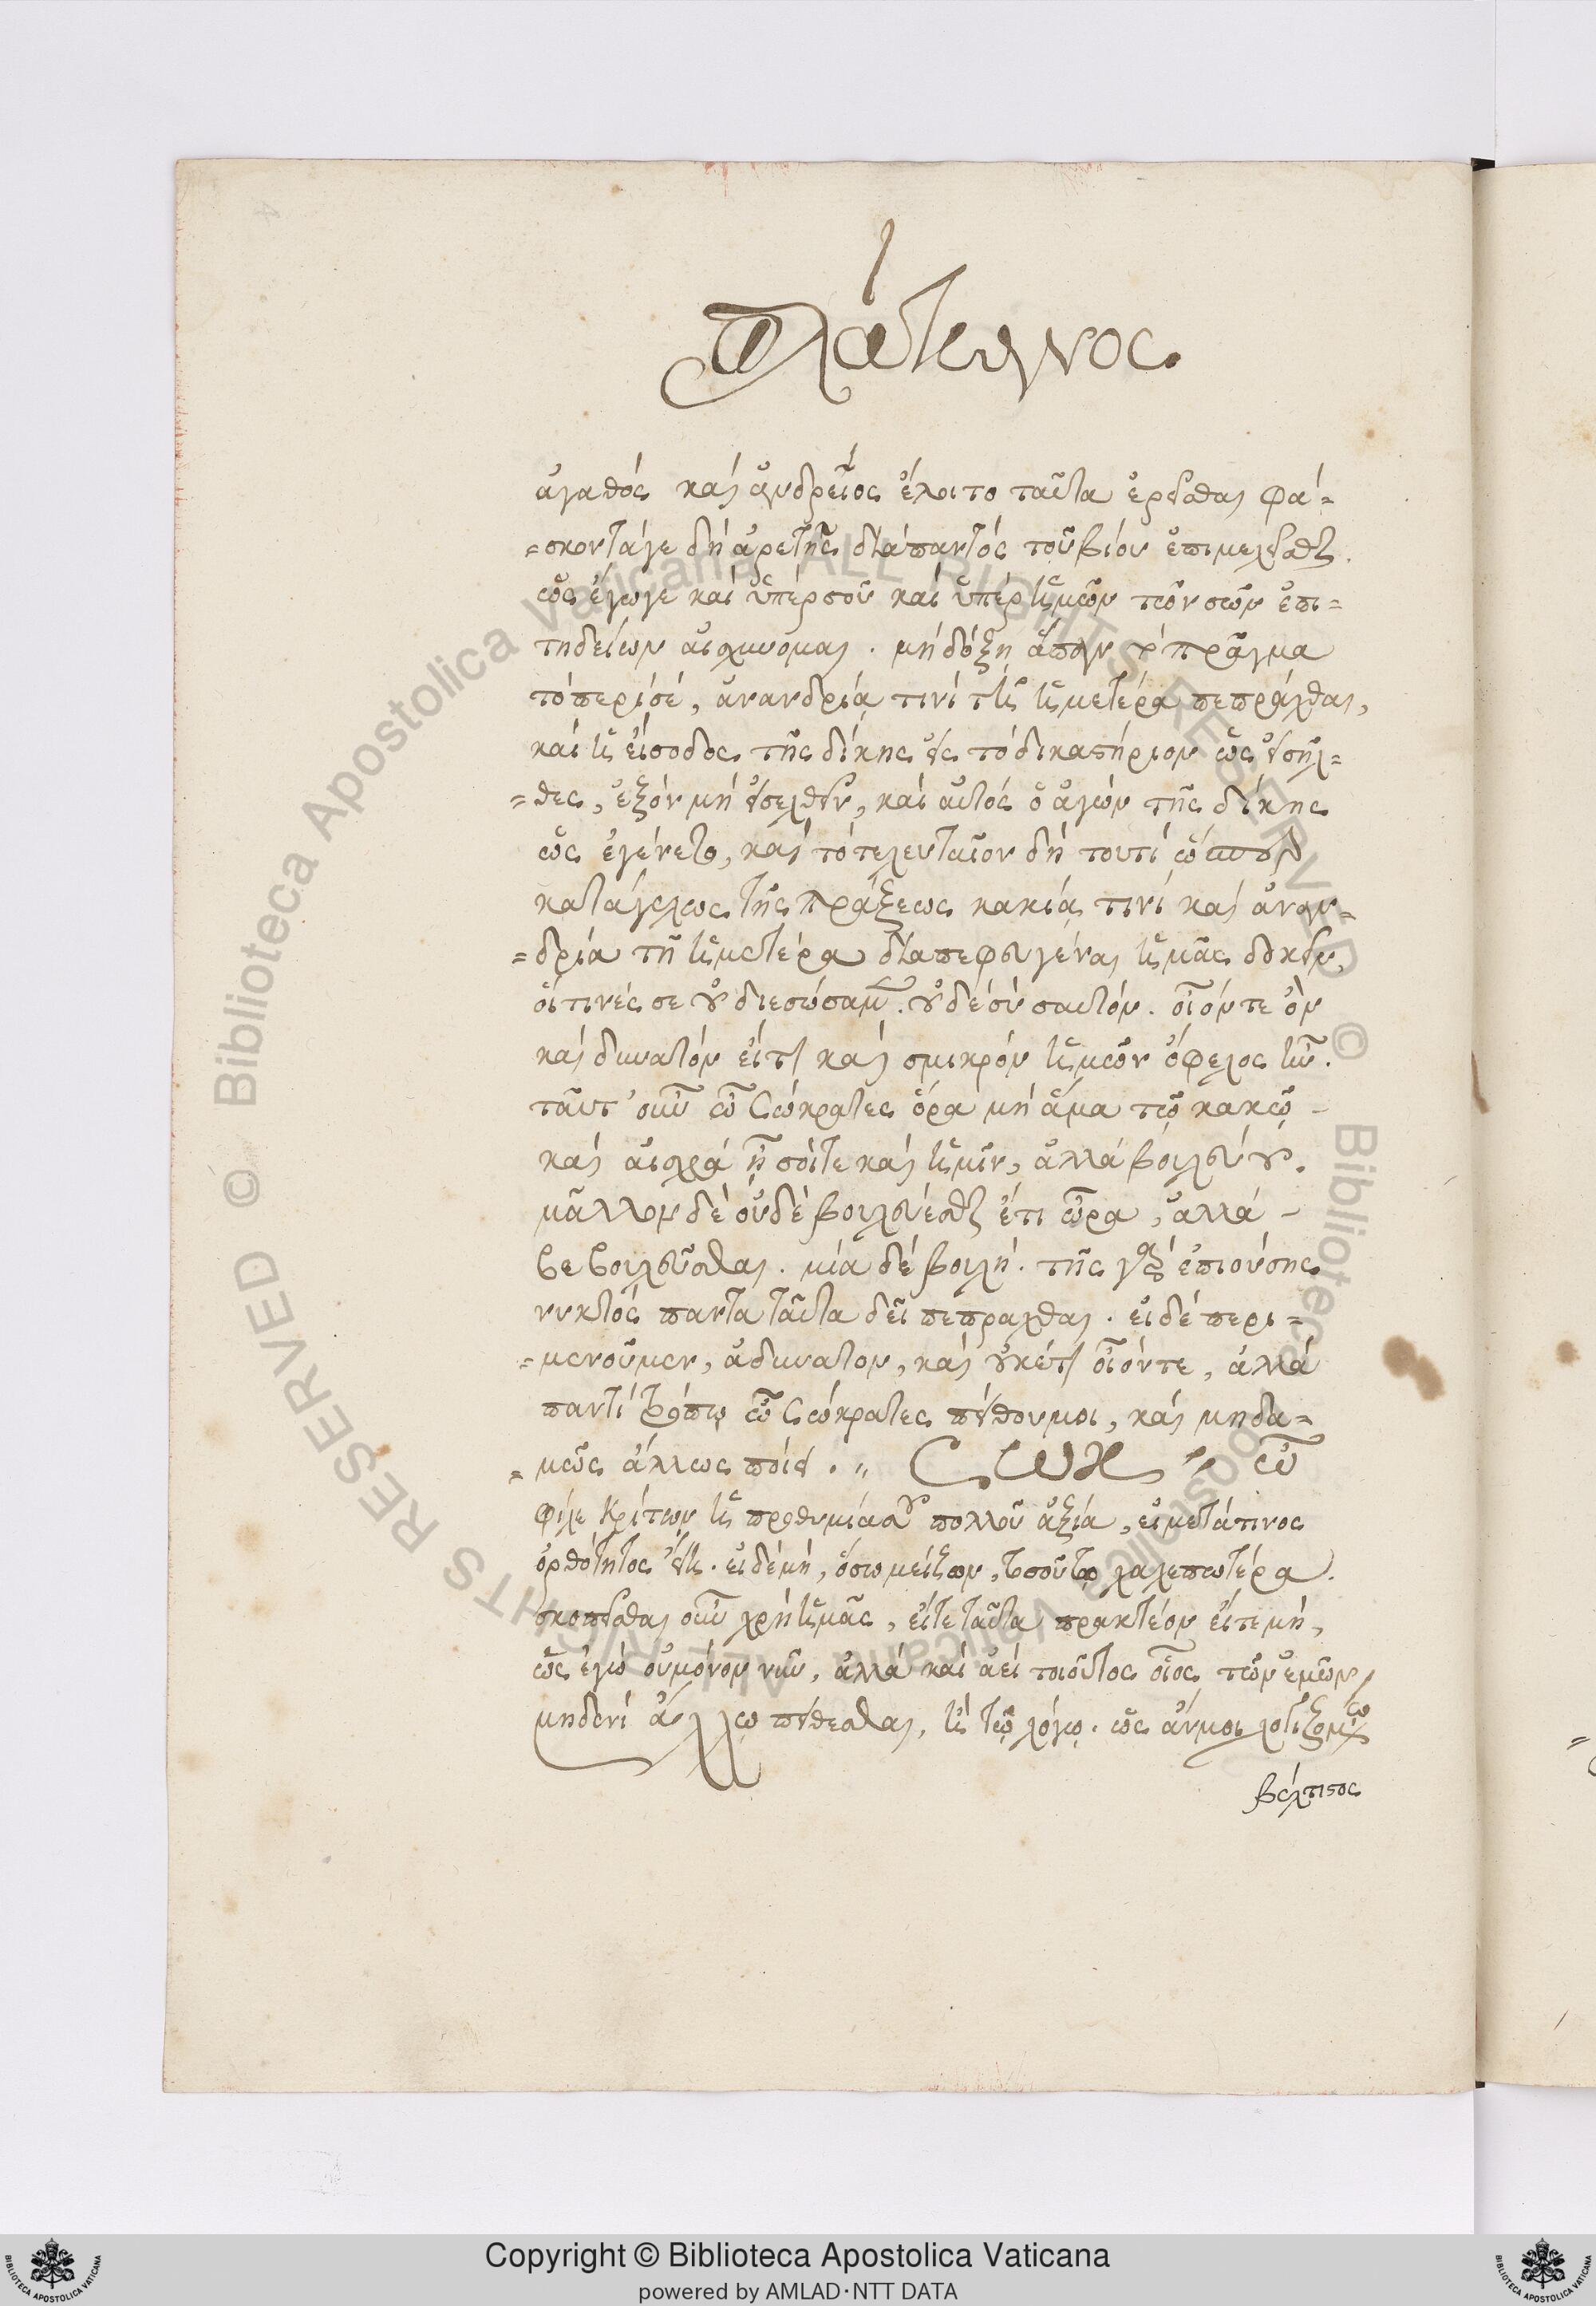 Πλάτωνος
ἀγαθὸς καὶ ἀνδρεῖος ἕλοιτο ταῦτα ἑρεῖσθαι φά=
=σκοντά γε δὴ ἀρετῆς διὰ παντὸς τοῦ βίου ἐπιμελεῖσθαι.
ὡς ἔγωγε καὶ ὑπὲρ σοῦ καὶ ὑπὲρ ἡμῶν τῶν σῶν ἐπι=
τηδείων αἰσχύνομαι. μὴ δόξῃ ἅπαν τὸ πρᾶγμα
τὸ περὶ σέ, ἀνανδρίᾳ τινὶ τῇ ἡμετέρᾳ πεπρᾶχθαι,
καὶ ἡ εἴσοδος τῆς δίκης εἰς τὸ δικαστήριον ὡς εἰσῆλ=
=θες, ἐξὸν μὴ εἰσελθεῖν, καὶ αὐτὸς ὁ ἀγὼν τῆς δίκης
ὡς ἐγένετο, καὶ τὸ τελευταῖον δὴ τουτὶ ὥσπερ
κατάγελως τῆς πράξεως κακίᾳ τινὶ καὶ ἀναν=
=δρίᾳ τῇ ἡμετέρᾳ διαπεφευγέναι ἡμᾶς δοκεῖν,
οἵτινές σε οὐ διεσώσαμεν. οὐδὲ σὺ σαυτόν. οἷόν τε ὂν
καὶ δυνατόν εἴ τι καὶ σμικρὸν ἡμῶν ὄφελος ἦν.
ταῦτ' οὖν ὦ Σώκρατες ὅρα μὴ ἅμα τῷ κακῷ
καὶ αἰσχρὰ ᾖ σοί τε καὶ ἡμῖν, ἀλλὰ βουλεύου.
μᾶλλον δὲ οὐδὲ βουλεύεσθαι ἔτι ὥρα, ἀλλὰ
βεβουλεῦσθαι. μία δὲ βουλή. τῆς γὰρ ἐπιούσης
νυκτὸς πάντα ταῦτα δεῖ πεπρᾶχθαι. εἰ δὲ περι=
=μενοῦμεν, ἀδύνατον, καὶ οὐκέτι οἷόν τε, ἀλλὰ
παντὶ τρόπῳ ὦ Σώκρατες πείθου μοι, καὶ μηδα=
=μῶς ἄλλως ποίει. „ Σωκ ὦ
φίλε Κρίτων ἡ προθυμία σου πολλοῦ ἀξία, εἰ μετά τινος
ὀρθότητος εἴη. εἰ δὲ μή, ὅσῳ μείζων, τοσούτῳ χαλεπωτέρα.
σκοπεῖσθαι οὖν χρὴ ἡμᾶς, εἴτε ταῦτα πρακτέον εἴτε μή,
ὡς ἐγὼ οὐ μόνον νῦν, ἀλλὰ καὶ ἀεὶ τοιοῦτος οἷος τῶν ἐμῶν
μηδενὶ ἄλλῳ πείθεσθαι, ἢ τῷ λόγῳ. ὡς ἄν μοι λογιζομένῳ
βέλτιστος
© Biblioteca Apostolica Vaticana ALL RIGHTS RESERVED © Biblioteca Apostolica Vaticana ALL RIGHTS RESERVED
Copyright © Biblioteca Apostolica Vaticana
powered by AMLAD·NTT DATA
BIBLIOTECA APOSTOLICA VATICANA
BIBLIOTECA APOSTOLICA VATICANA